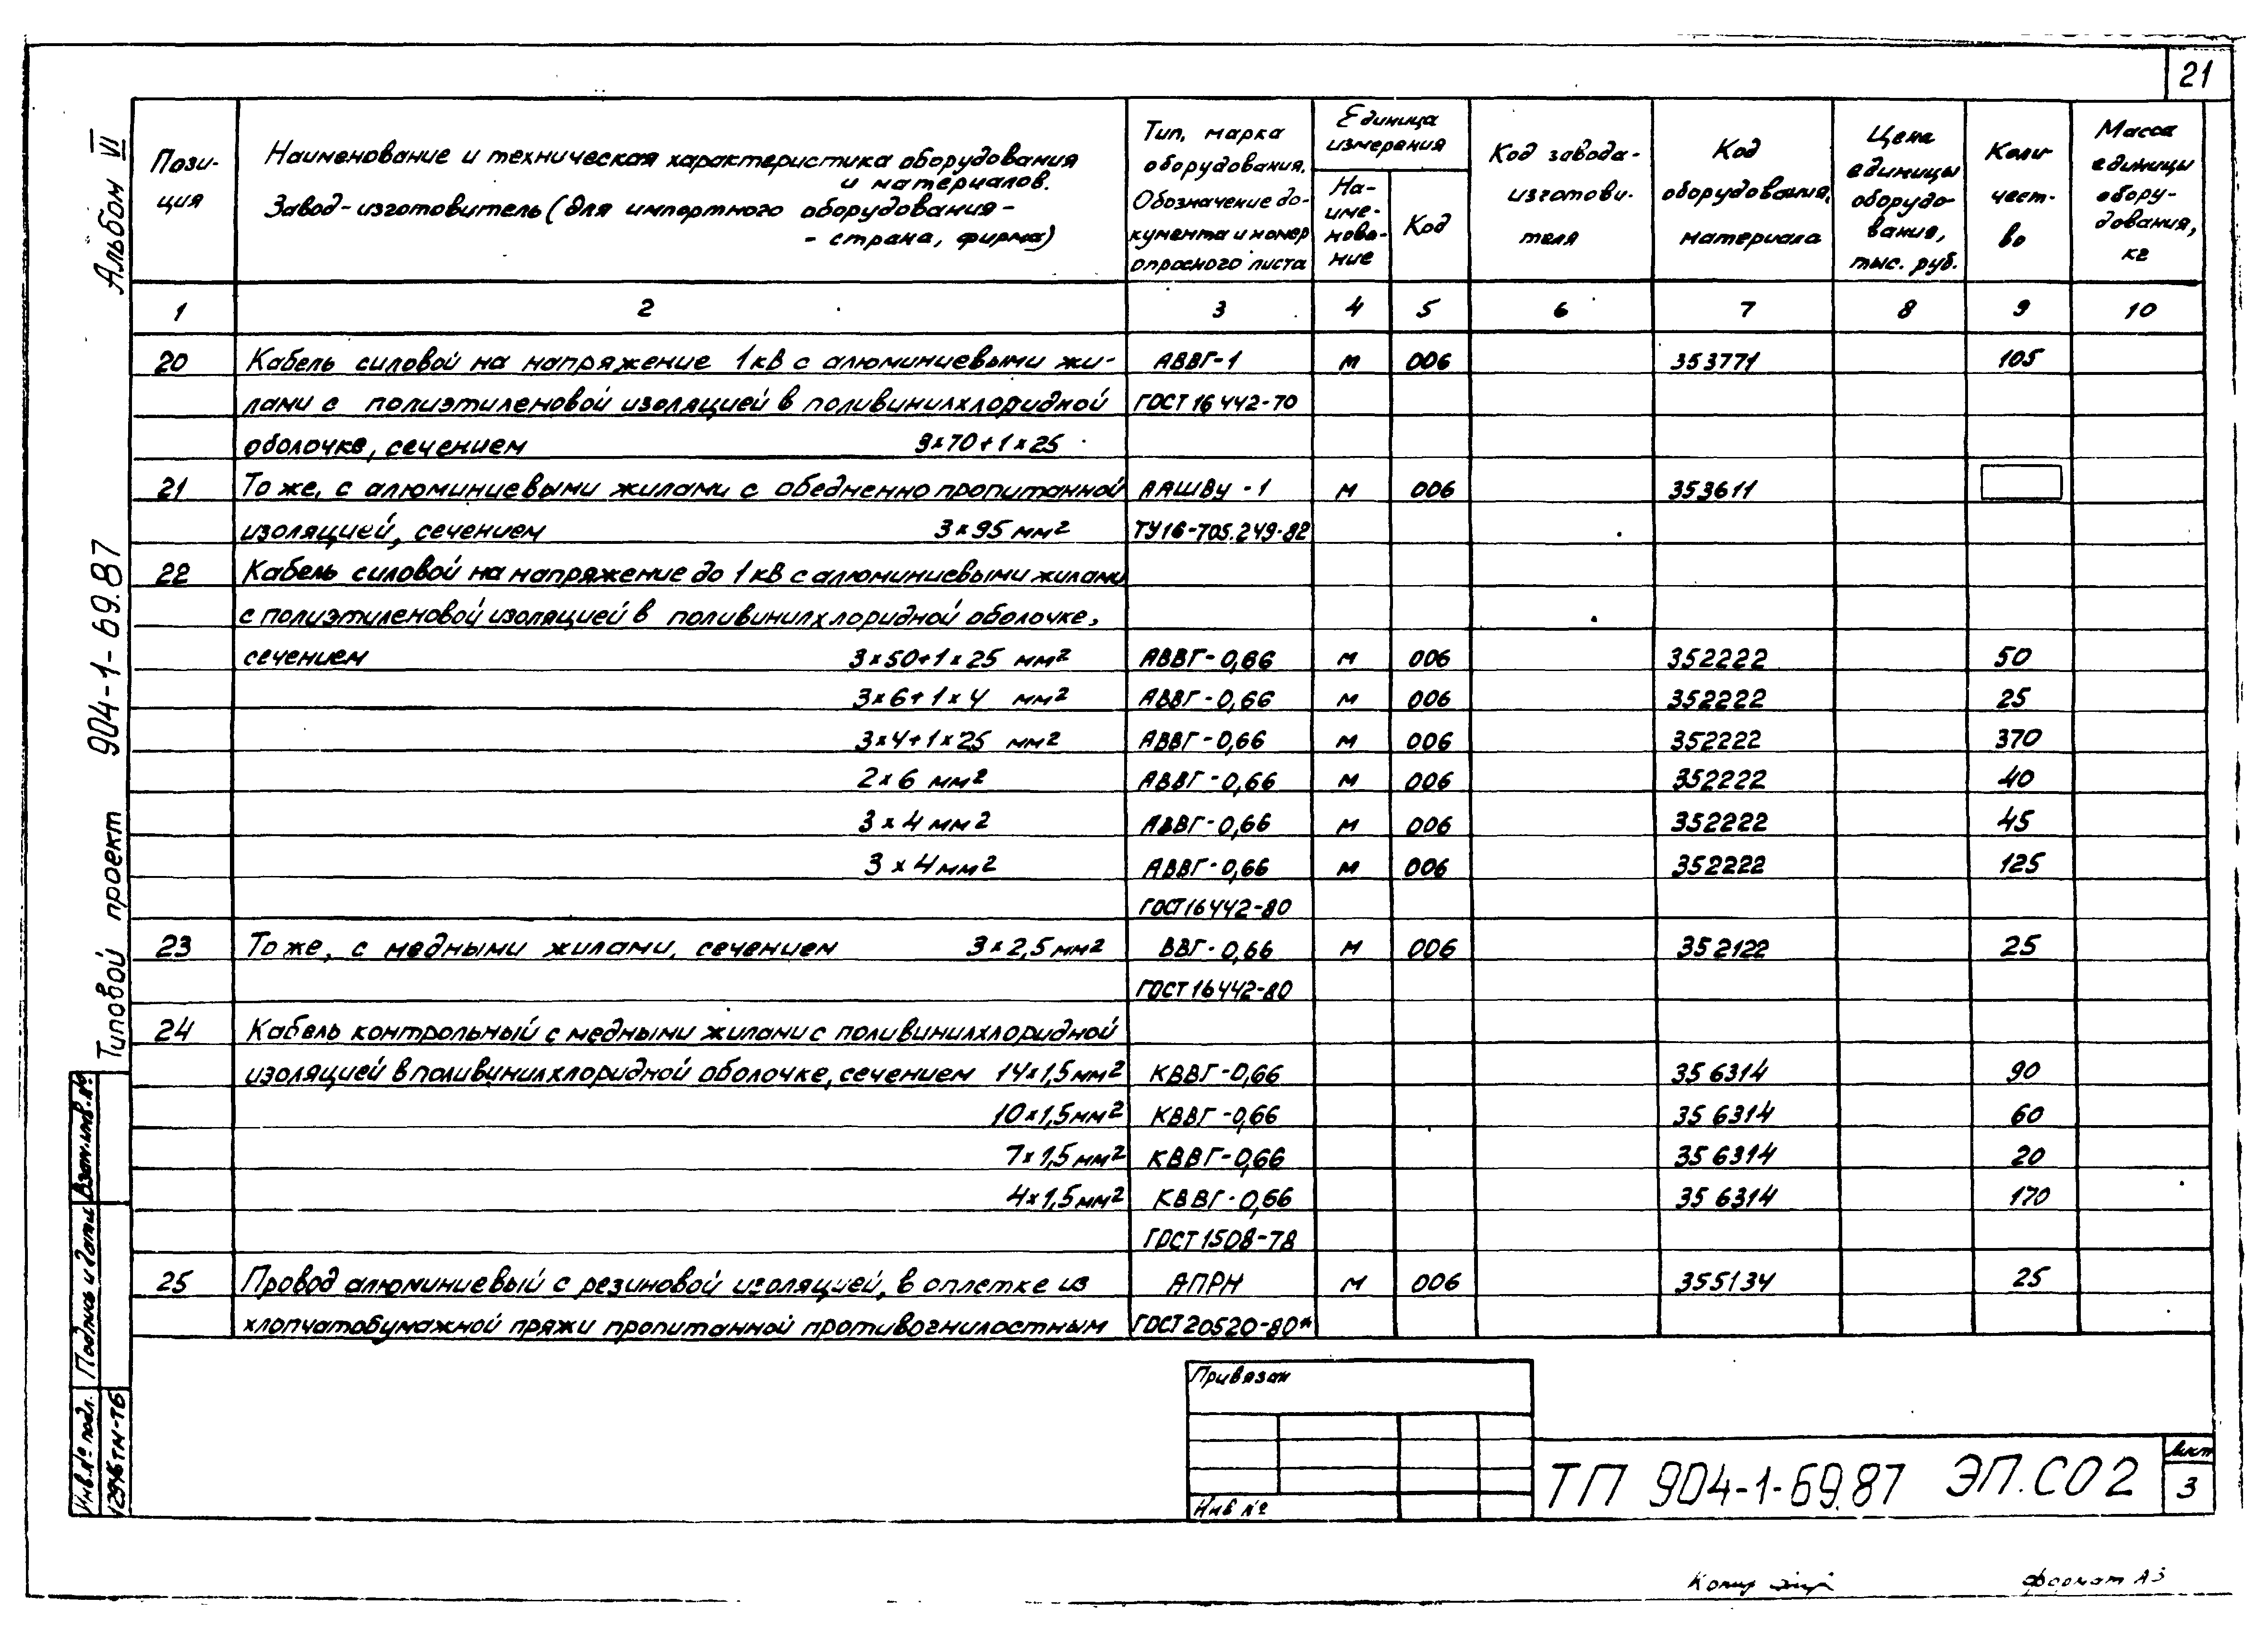 21
Альбом VI
Типовой проект 904-1-69.87
Пози-
ция
Наименование и техническая характеристика оборудования
и материалов.
Завод-изготовитель (для импортного оборудования -
- страна, фирма)
Тип, марка
оборудования.
Обозначение до-
кумента и номер
опросного листа
Единица
измерения
На-
име-
нова-
ние
Код
Код завода-
изготови-
теля
Код
оборудования,
материала
Цена
единицы
оборудо-
вания,
тыс. руб.
Коли-
чест-
во
Масса
единицы
обору-
дования,
кг
1 2 3 4 5 6 7 8 9 10
20 Кабель силовой на напряжение 1кВ с алюминиевыми жи- АВВГ-1 м 006 353771 105
лами с полиэтиленовой изоляцией в поливинилхлоридной ГОСТ 16442-70
оболочке, сечением 3х70+1х25
21 То же, с алюминиевыми жилами с обедненно пропитанной ААШВу-1 м 006 353611
изоляцией, сечением 3х95 мм2 ТУ16-705.249-82
22 Кабель силовой на напряжение до 1кВ с алюминиевыми жилами
с полиэтиленовой изоляцией в поливинилхлоридной оболочке,
сечением 3х50+1х25 мм2 АВВГ-0,66 м 006 352222 50
3х6+1х4 мм2 АВВГ-0,66 м 006 352222 25
3х4+1х25 мм2 АВВГ-0,66 м 006 352222 370
2х6 мм2 АВВГ-0,66 м 006 352222 40
3х4 мм2 АВВГ-0,66 м 006 352222 45
3х4 мм2 АВВГ-0,66 м 006 352222 125
ГОСТ 16442-80
23 То же, с медными жилами, сечением 3х2,5 мм2 ВВГ-0,66 м 006 352122 25
ГОСТ 16442-80
24 Кабель контрольный с медными жилами с поливинилхлоридной
изоляцией в поливинилхлоридной оболочке, сечением 14х1,5мм2 КВВГ-0,66 356314 90
10х1,5мм2 КВВГ-0,66 356314 60
7х1,5мм2 КВВГ-0,66 356314 20
4х1,5мм2 КВВГ-0,66 356314 170
ГОСТ 1508-78
25 Провод алюминиевый с резиновой изоляцией, в оплетке из АПРН м 006 355134 25
хлопчатобумажной пряжи пропитанной противогнилостным ГОСТ 20520-80*
Взам.инв.№
Подпись и дата
Инв.№ подл.
Привязан
Инв №
ТП 904-1-69.87 ЭП.СО2
Лист
3
Копир
формат А3